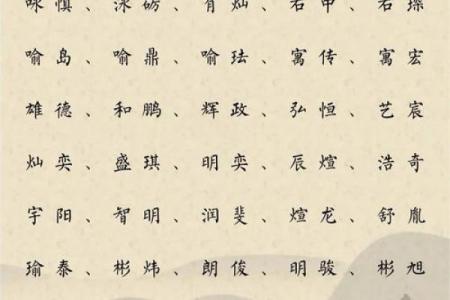 咏慎、泳砺、有灿、若中、若琛
喻岛、喻鼎、喻珐、寓传、寓宏
雄德、和鹏、辉政、弘恒、艺宸
灿奕、盛琪、明奕、辰煊、浩奇
宇阳、智明、润斐、煊龙、舒胤
瑜泰、彬炜、朗俊、明骏、彬旭